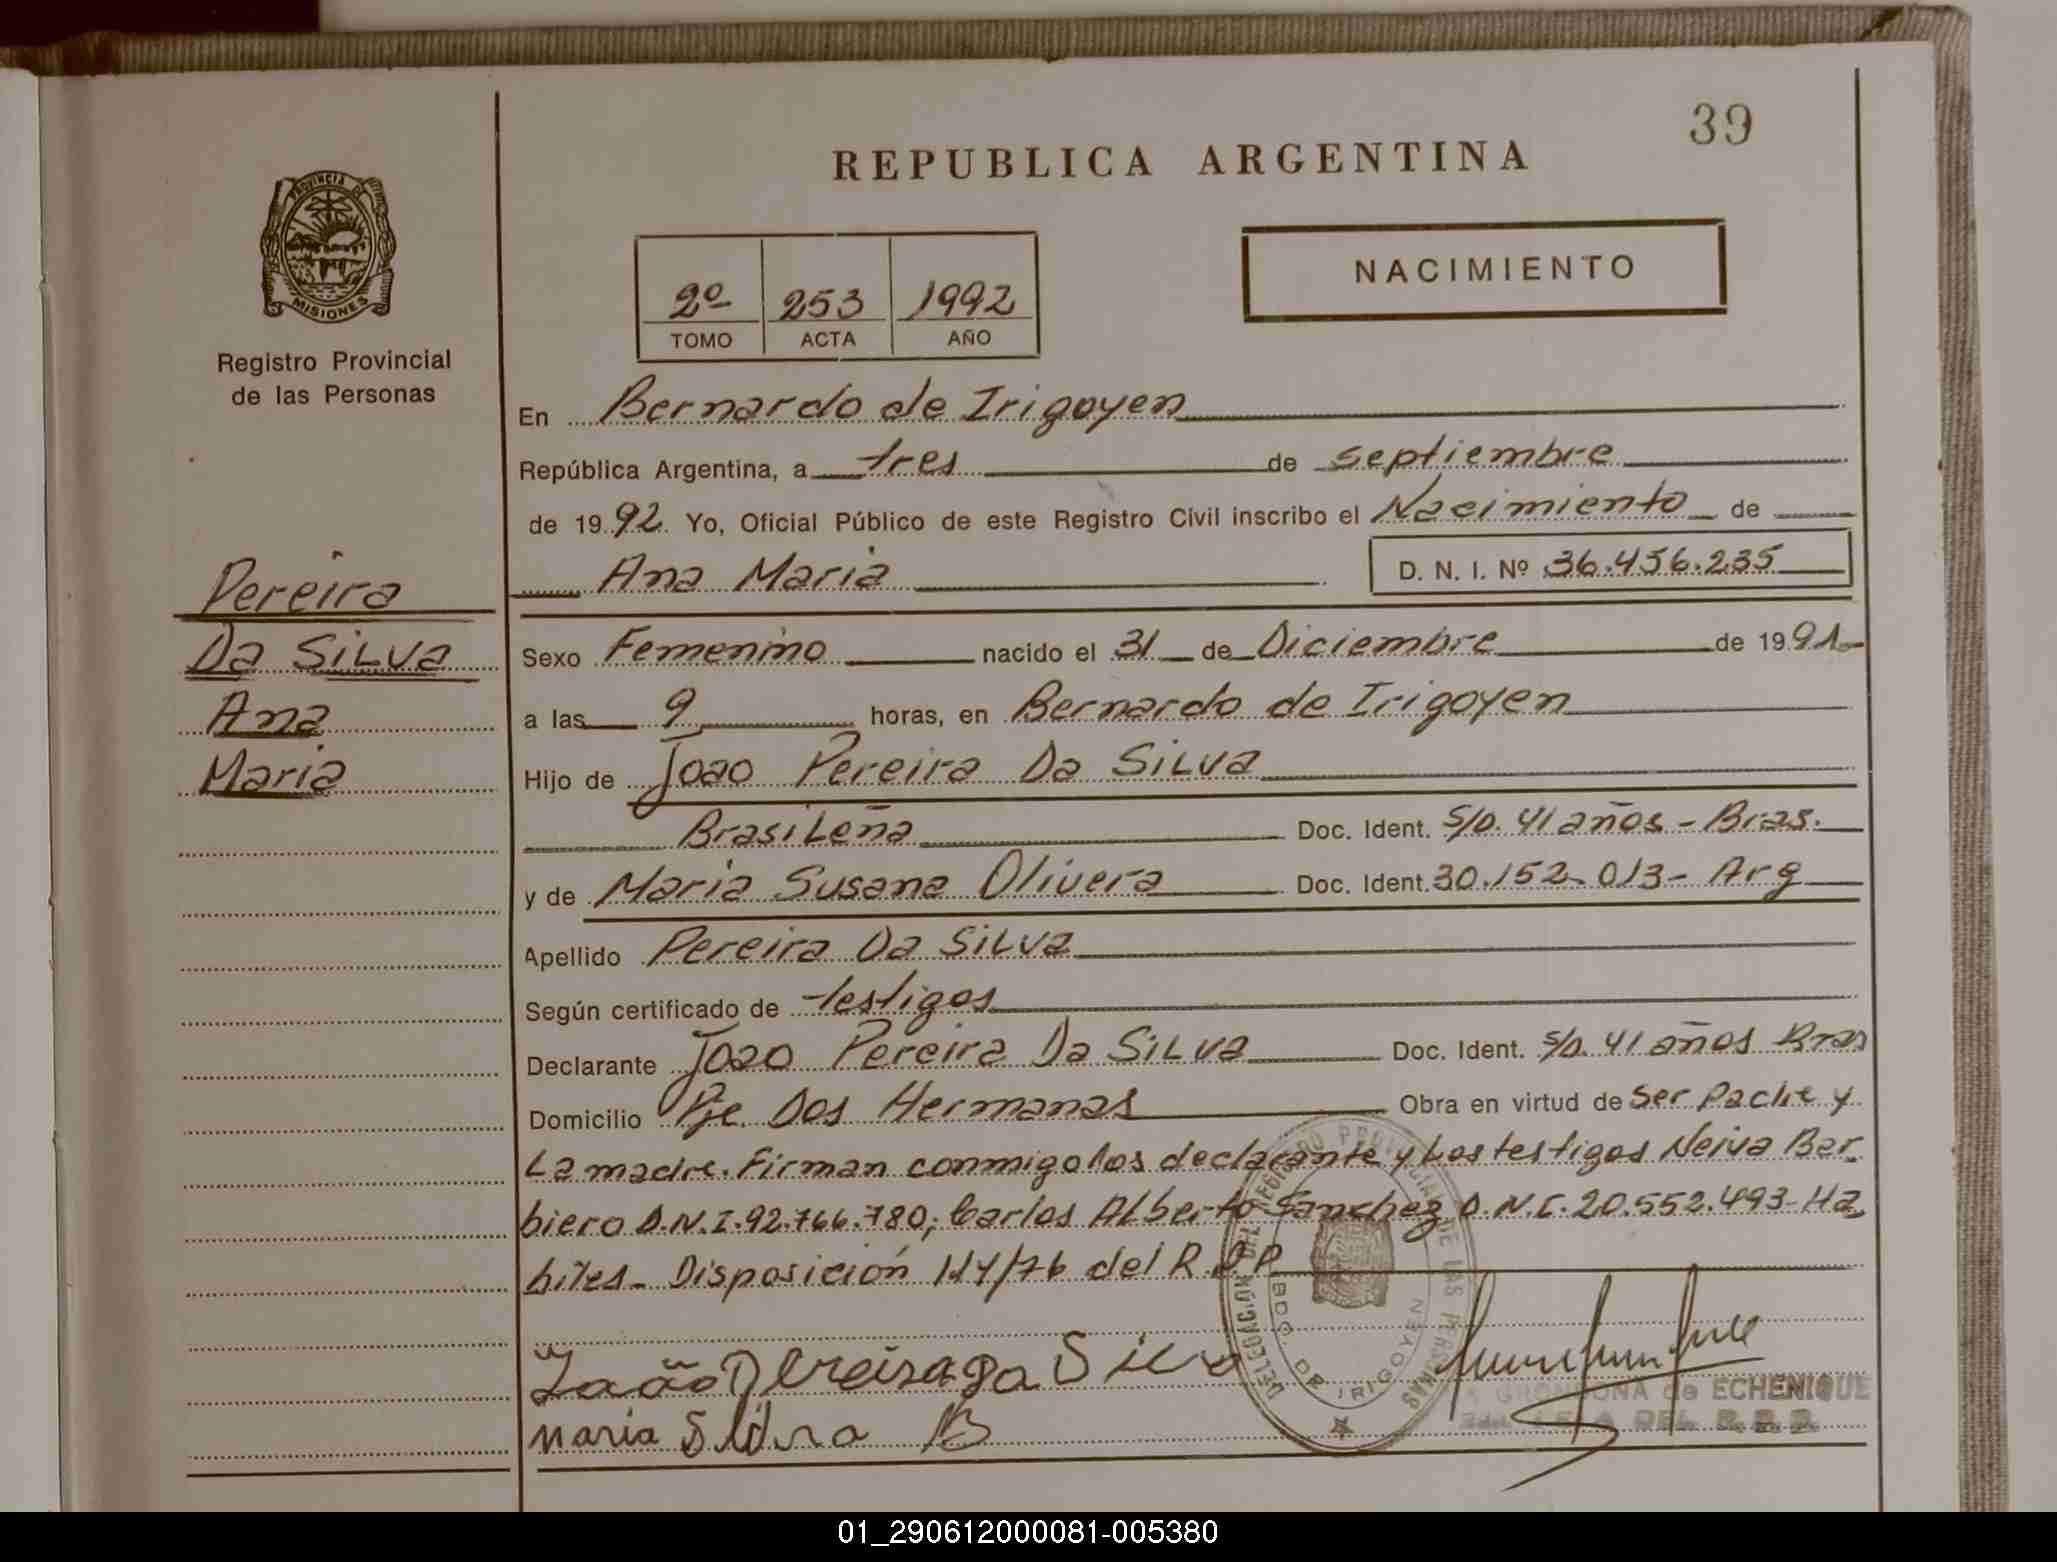 39
REPUBLICA ARGENTINA
PROVINCIA DE
MISIONES
Registro Provincial
de las Personas
NACIMIENTO
2º 253 1992
TOMO ACTA AÑO
En Bernardo de Irigoyen
República Argentina, a tres de septiembre
de 1992 Yo, Oficial Público de este Registro Civil inscribo el Nacimiento de
Ana Maria D. N. I. Nº 36.456.235
Pereira
Da Silva
Ana
Maria
Sexo Femenino nacido el 31 de Diciembre de 1991
a las 9 horas, en Bernardo de Irigoyen
Hijo de Joao Pereira Da Silva
Brasileña Doc. Ident. S/D. 41 años - Bras.
y de Maria Susana Olivera Doc. Ident. 30.152.013 - Arg
Apellido Pereira Da Silva
Según certificado de testigos
Declarante Joao Pereira Da Silva Doc. Ident. S/D. 41 años Bras
Domicilio Pje. Dos Hermanas Obra en virtud de ser Padre y
La madre. Firman conmigo los declarante y Los testigos Neiva Bar
biero D.N.I. 92.766.780; Carlos Alberto Sanchez D.N.I. 20.552.493 - Ha
biles - Disposición 114/76 del R.P.P
DELEGACION DEL REGISTRO PROVINCIAL DE LAS PERSONAS
BDO. DE IRIGOYEN
João Pereira da Silva
Maria S
de ECHENIQUE
DEL R. P. P.
01_290612000081-005380